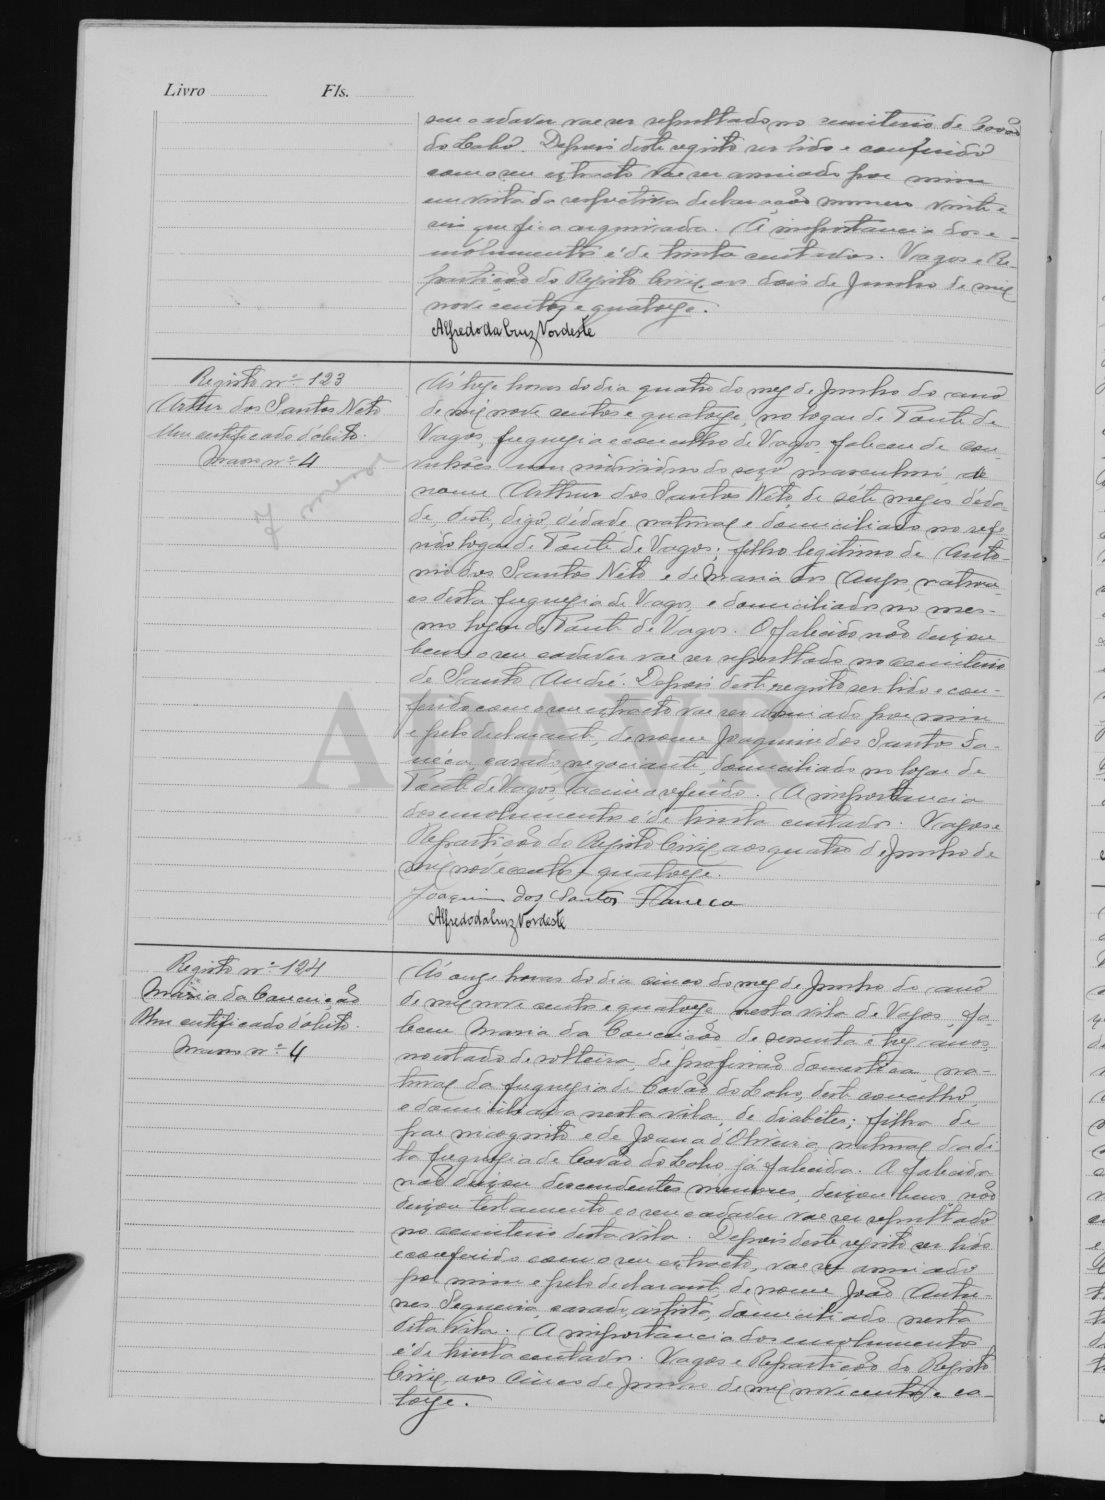 Livro Fls.
seu cadaver vae ser sepultado no cemiterio de Covão
do Lobo. Depois deste registo ser lido e conferido
com o seu extracto vae ser assinado por mim
em vista da respectiva declaração numero vinte e
seis que fica arquivada. A importancia dos e-
molumentos é de trinta centavos. Vagos e Re-
partição do Registo Civil, aos dois de Junho de mil
nove centos e quatorze.
Alfredo da Cruz Nordeste
Registo nº 123
Arthur dos Santos Neto
Um certificado d'obito.
Masso nº 4
7 meses
Ás treze horas do dia quatro do mez de Junho do ano
de mil nove centos e quatorze, no logar de Ponte de
Vagos, freguezia e concelho de Vagos, faleceu de con-
vulsões um individuo do sexo masculino, de
nome Arthur dos Santos Neto, de séte mezes d'eda-
de, deste, digo, d'edade natural e domiciliado no refe-
rido logar de Ponte de Vagos; filho legitimo de Anto-
nio dos Santos Neto e de Maria dos Anjos, naturae-
es desta freguezia de Vagos, e domiciliados no mes-
mo logar de Ponte de Vagos. O falecido não deixou
bens e o seu cadaver vae ser sepultado no cemiterio
de Santo André. Depois deste registo ser lido e con-
ferido com o seu extracto vae ser assinado por mim
e pelo declarante, de nome Joaquim dos Santos Fa-
néca, casado, negociante, domiciliado no logar de
Ponte de Vagos, acima referido. A importancia
dos emolumentos é de trinta centavos. Vagos e
Repartição do Registo Civil aos quatro de Junho de
mil nove centos e quatorze.
Joaquim dos Santos Faneca
Alfredo da Cruz Nordeste
ADAVR
Registo nº 124
Maria da Conceição
Um certificado d'obito.
Masso nº 4
Ás onze horas do dia cinco do mez de Junho do ano
de mil nove centos e quatorze, nesta vila de Vagos, fa-
leceu Maria da Conceição, de sessenta e trez anos,
no estado de solteira, de profissão domestica, na-
tural da freguezia de Covão do Lobo, deste concelho,
e domiciliada nesta vila, de diabétes; filha de
pae incognito e de Joana d'Oliveira, natural da di-
ta freguezia de Covão do Lobo, já falecida. A falecida
não deixou descendentes menores, deixou bens, não
deixou testamento e o seu cadaver vae ser sepultado
no cemiterio desta vila. Depois deste registo ser lido
e conferido com o seu extracto, vae ser assinado
por mim e pelo declarante, de nome João Antu-
nes Sequeira, casado, artista, domiciliado nesta
dita vila. A importancia dos emolumentos
é de trinta centavos. Vagos e Repartição do Registo
Civil, aos cinco de Junho de mil nove centos e ca-
torze.